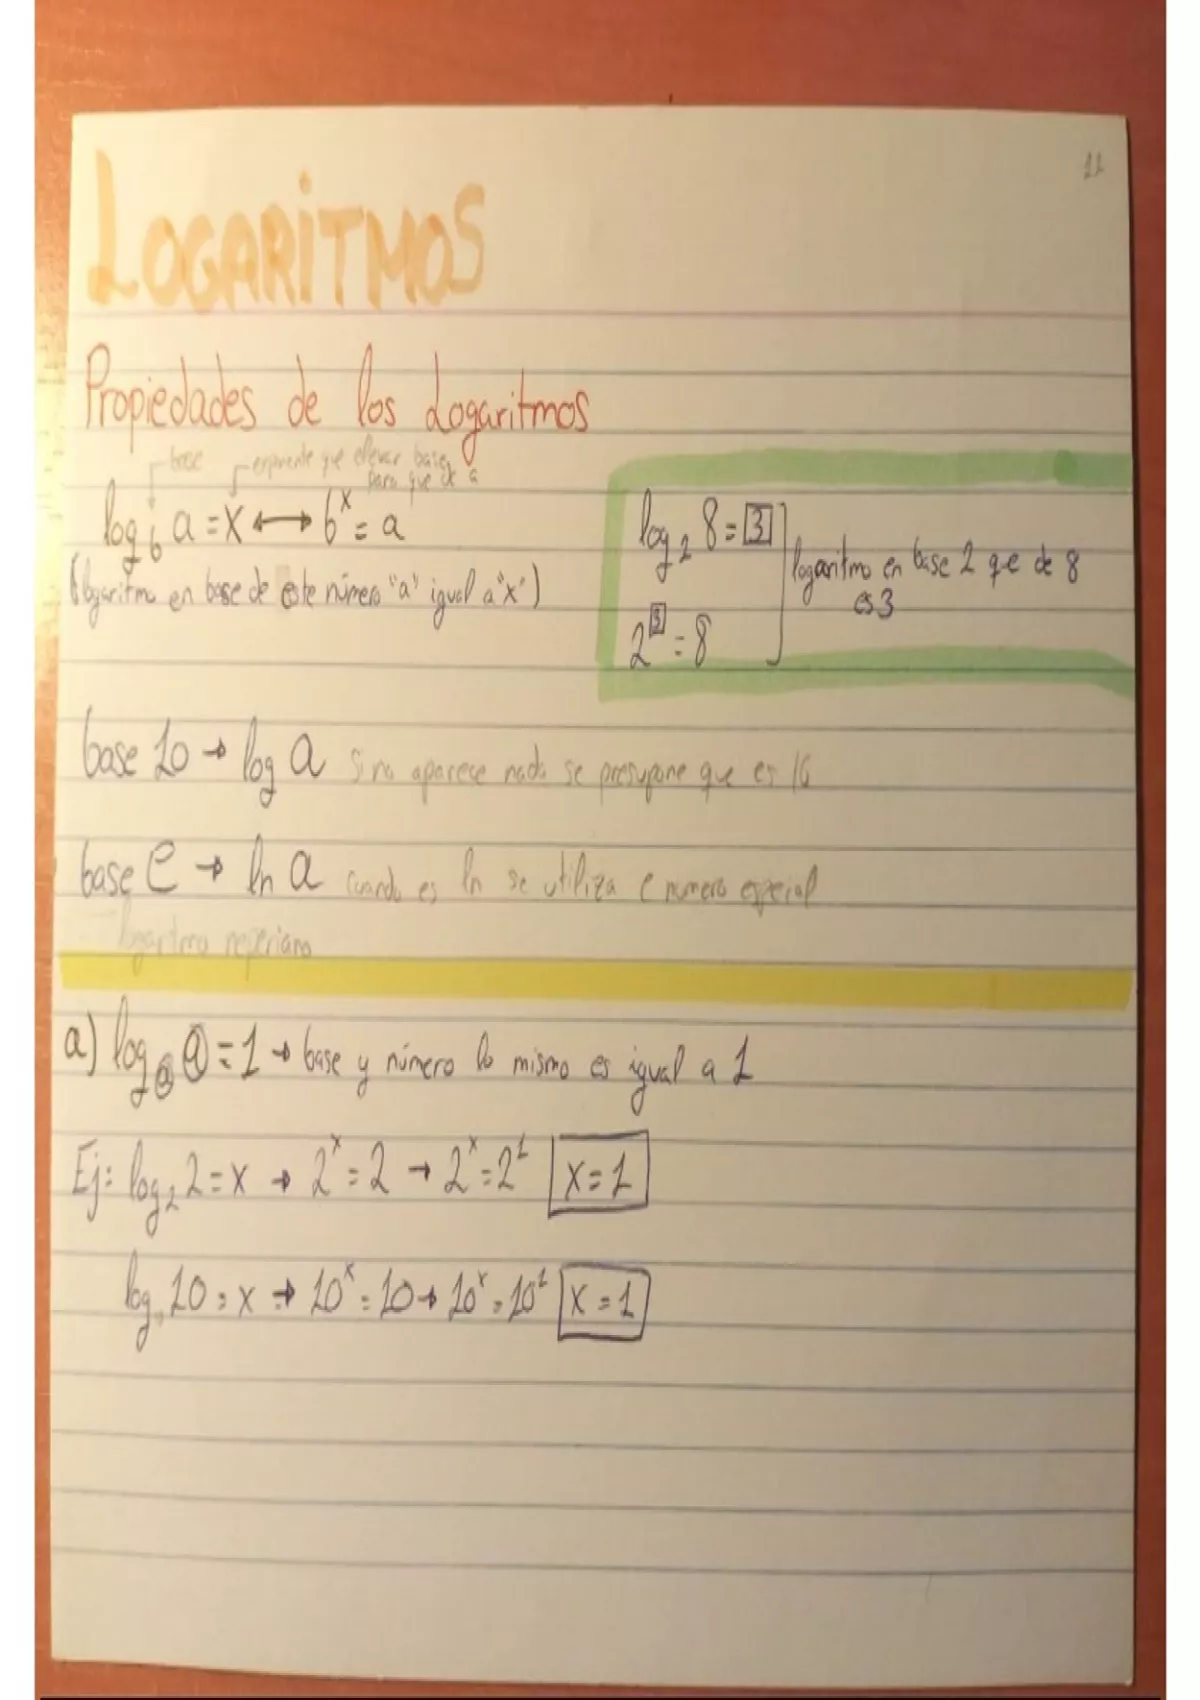 11
LOGARITMOS
Propiedades de los Logaritmos
base exponente que elevar base
para que de a
log_b a = x ↔ b^x = a
(logaritmo en base de este número "a" igual a "x")
log_2 8 = 3
2^3 = 8
logaritmo en base 2 que de 8
es 3
base 10 → log a Si no aparece nada se presupone que es 10
base e → ln a cuando es ln se utiliza e numero especial
logaritmo neperiano
a) log_a a = 1 → base y número lo mismo es igual a 1
Ej: log_2 2 = x → 2^x = 2 → 2^x = 2^1 x = 1
log 10 = x → 10^x = 10 → 10^x = 10^1 x = 1